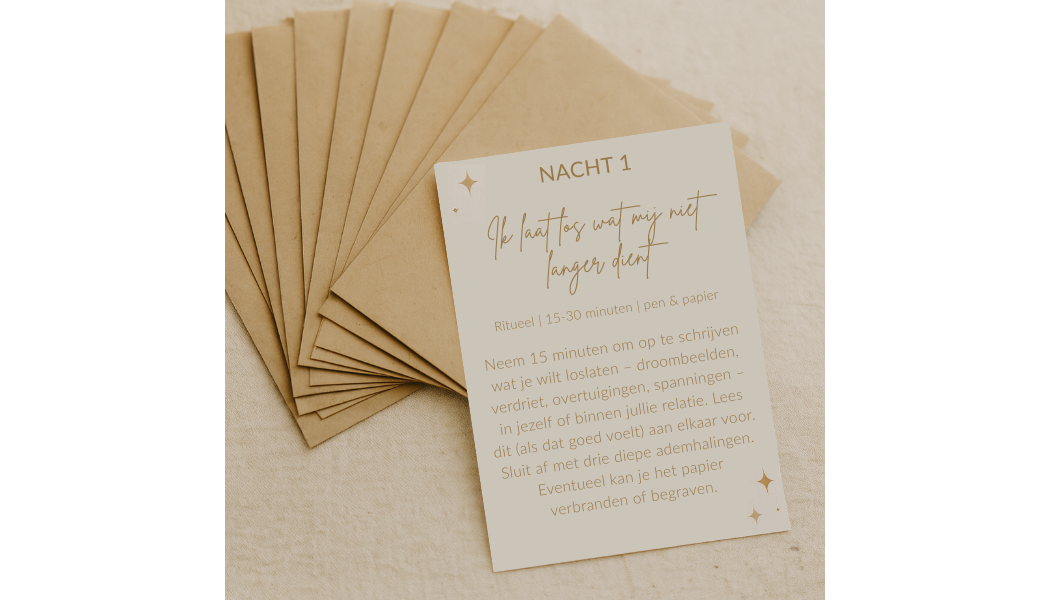 NACHT 1
Ik laat los wat mij niet
langer dient
Ritueel | 15-30 minuten | pen & papier
Neem 15 minuten om op te schrijven
wat je wilt loslaten – droombeelden,
verdriet, overtuigingen, spanningen –
in jezelf of binnen jullie relatie. Lees
dit (als dat goed voelt) aan elkaar voor.
Sluit af met drie diepe ademhalingen.
Eventueel kan je het papier
verbranden of begraven.